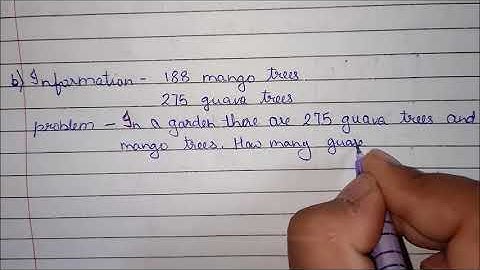 b) Information - 188 mango trees
275 guava trees
problem - In a garden there are 275 guava trees and
mango trees. How many guav